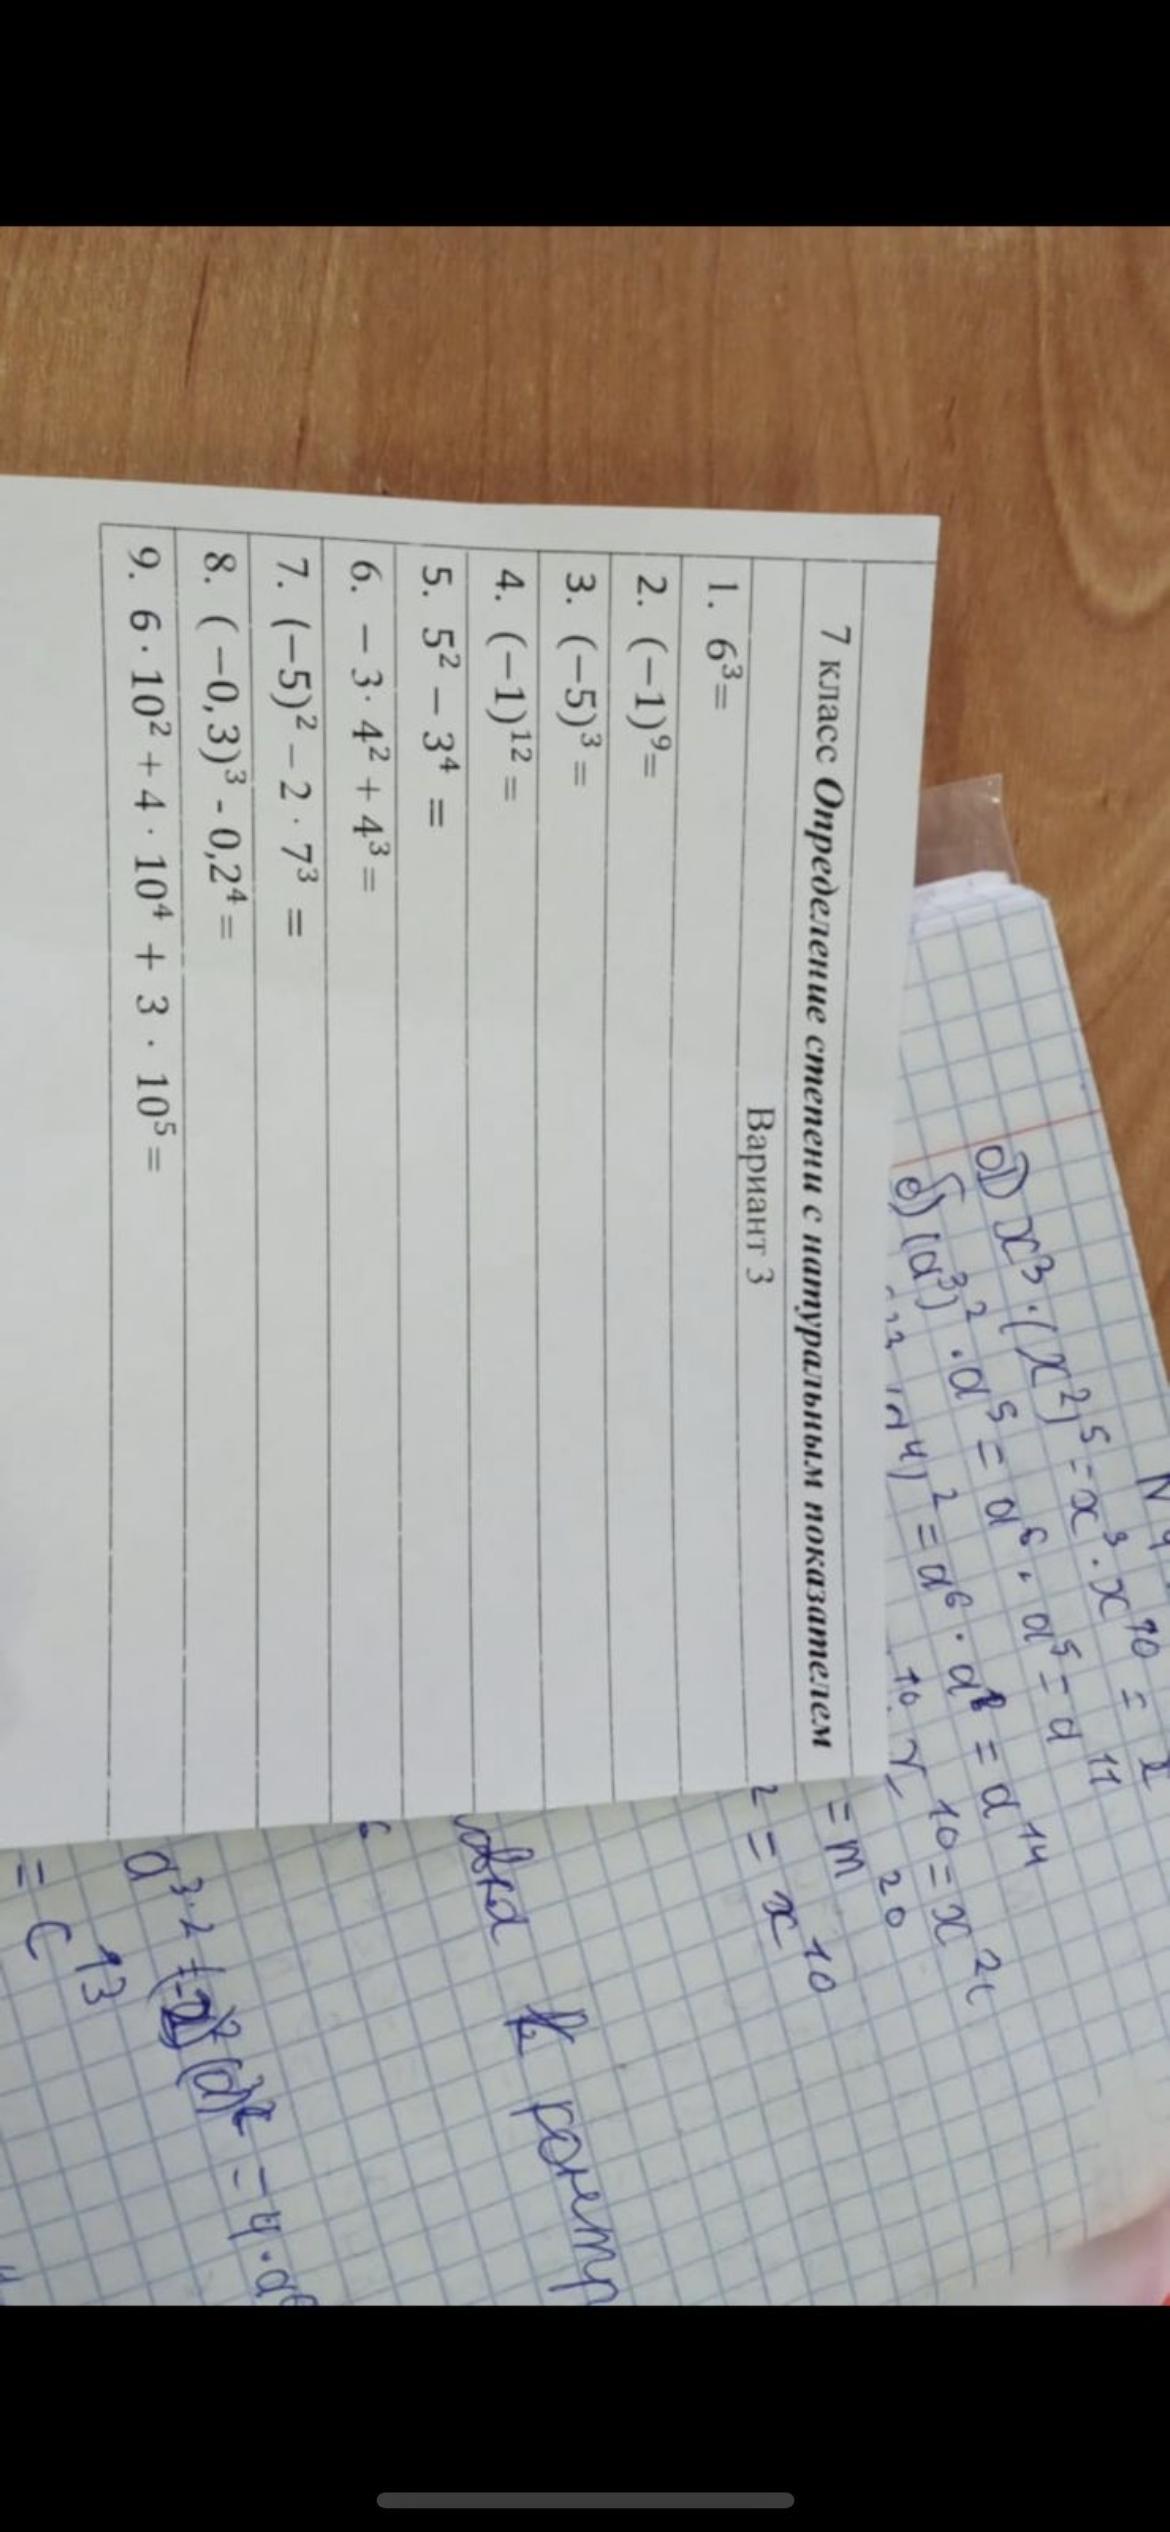 7 класс Определение степени с натуральным показателем
Вариант 3
1. 6³=
2. (−1)⁹=
3. (−5)³=
4. (−1)¹²=
5. 5² − 3⁴ =
6. − 3· 4² + 4³=
7. (−5)² − 2 · 7³ =
8. (−0,3)³ - 0,2⁴=
9. 6 · 10² + 4 · 10⁴ + 3 · 10⁵=
x³·(x²)⁵=x³·x¹⁰=
б) (a³)²·a⁵=a⁶·a⁵=a¹¹
a⁴)²=a⁶·a⁸=a¹⁴
¹⁰=x²
=m²⁰
²=x¹⁰
овка к контр
6
(a³)²=4·a⁶
=c¹³